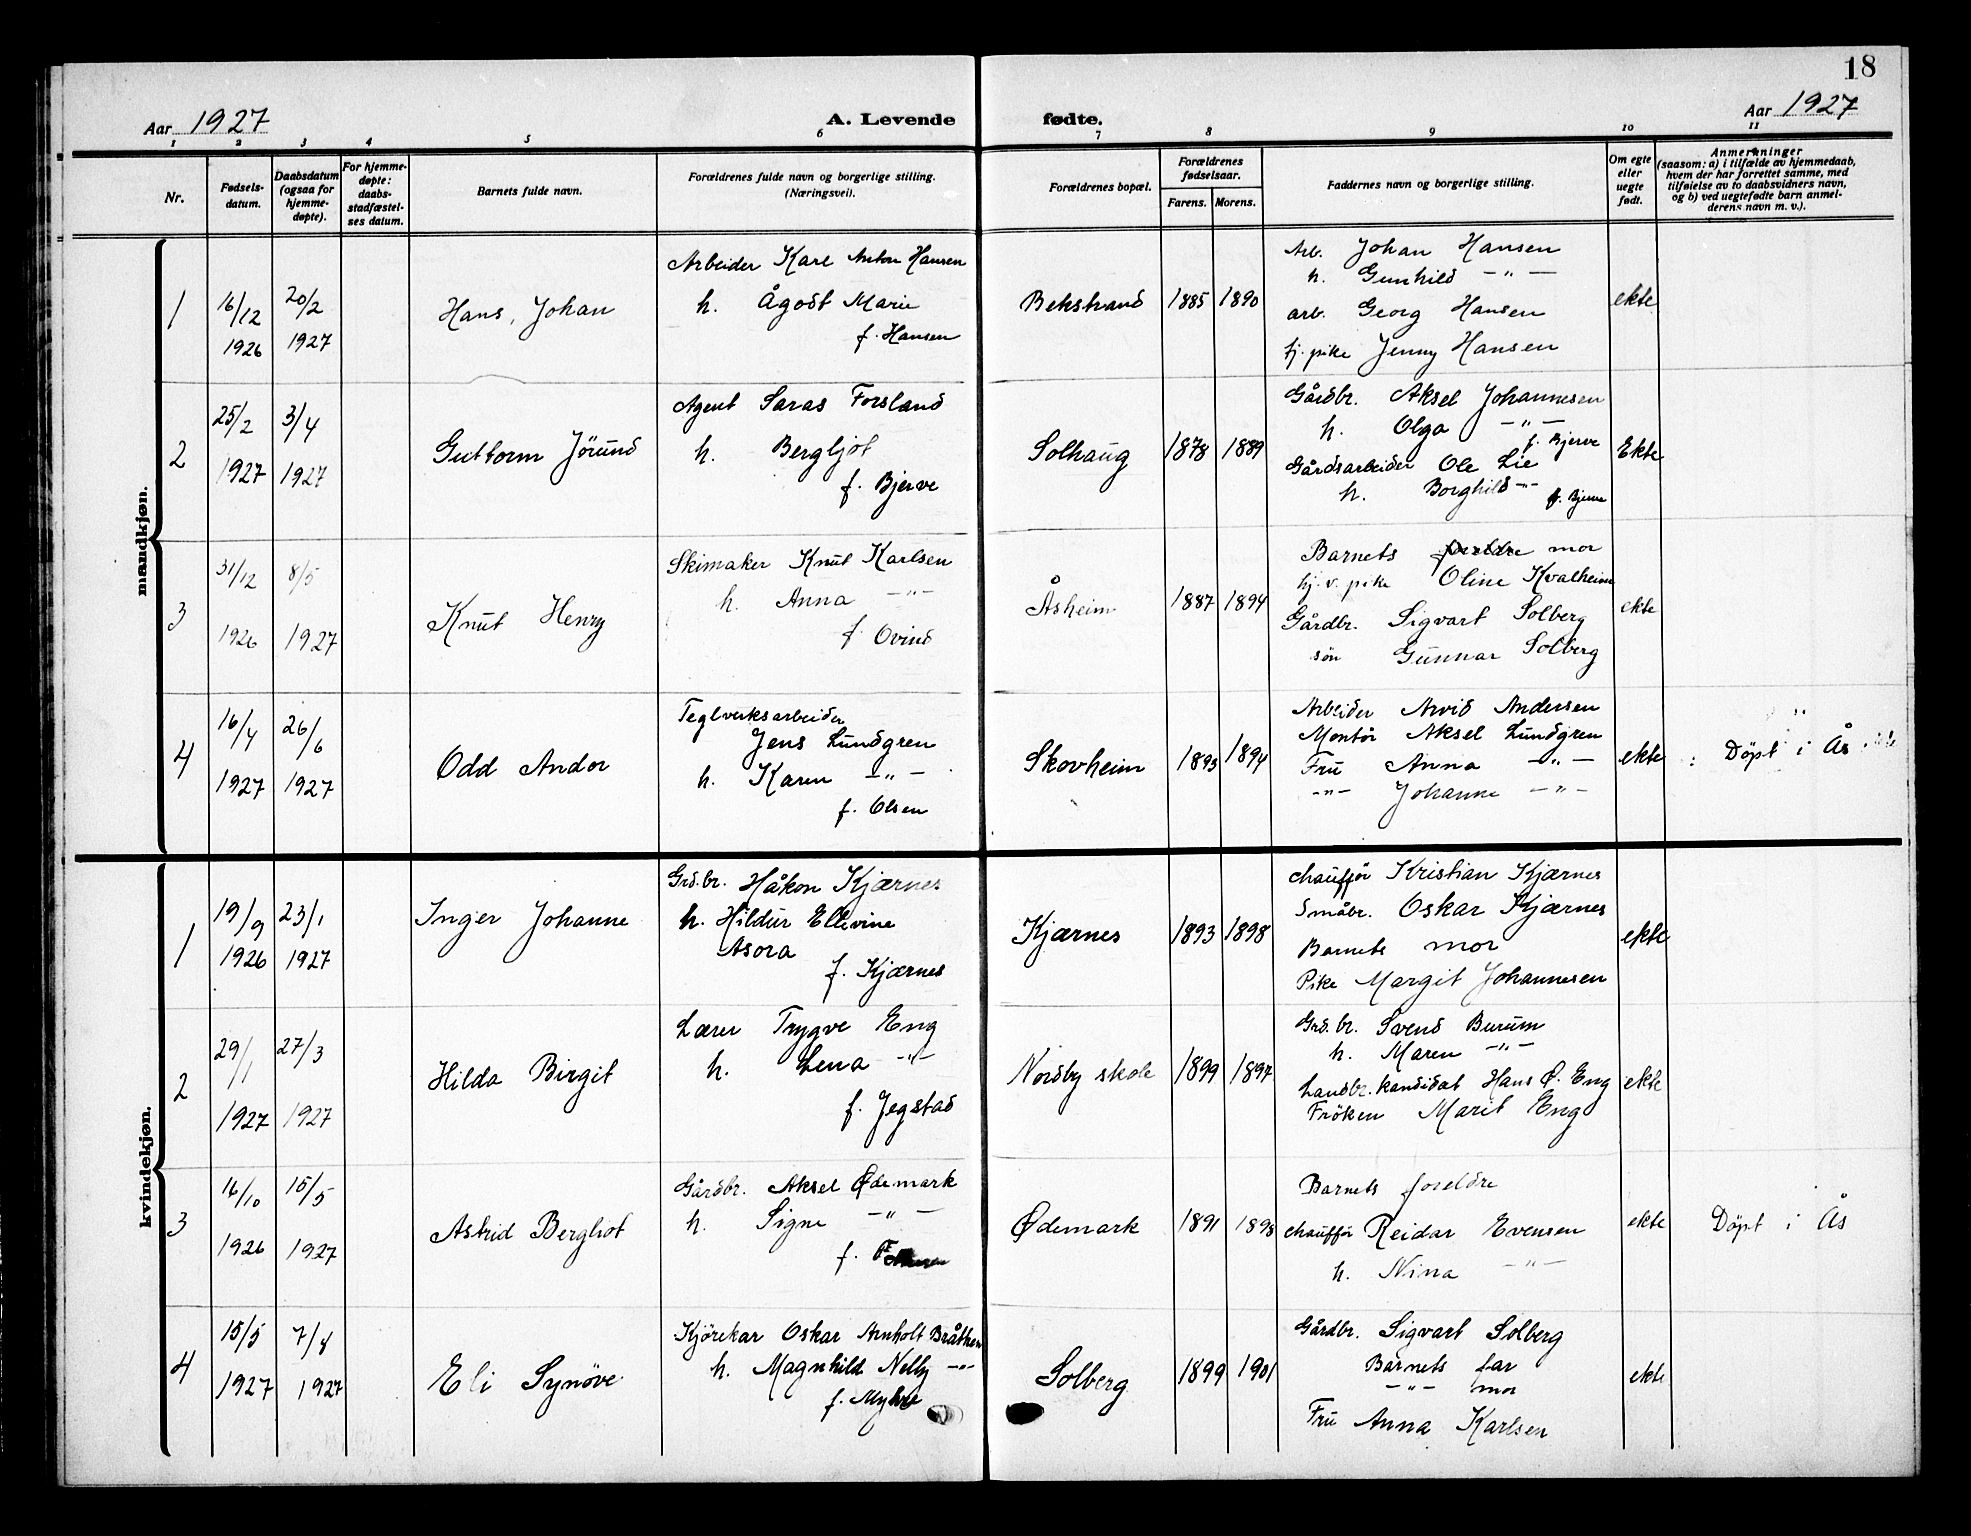 18
Aar 1927 A. Levende fødte. Aar 1927
1 2 3 4 5 6 7 8 9 10 11
Nr.
Fødsels-
datum.
Daabsdatum
(ogsaa for
hjemme-
døpte).
For hjemme-
døpte:
daabs-
stadfæstel-
ses datum.
Barnets fulde navn.
Forældrenes fulde navn og borgerlige stilling.
(Næringsvei).
Forældrenes bopæl.
Forældrenes
fødselsaar.
Farens. Morens.
Faddernes navn og borgerlige stilling.
Om egte
eller
uegte
født.
Anmerkninger
(saasom: a) i tilfælde av hjemmedaab,
hvem der har forrettet samme, med
tilføielse av to daabsvidners navn,
og b) ved uegtefødte barn anmel-
derens navn m. v.).
mandkjøn.
1
16/12
1926
20/2
1927
Hans, Johan
Arbeider Karl Anton Hansen
h. Ågodt Marie
f. Hansen
Bekstrand
1885 1890
Arb. Johan Hansen
h. Gunhild -"-
arb. Georg Hansen
tj. pike Jenny Hansen
ekte
2
25/2
1927
3/4
1927
Guttorm Jörund
Agent Saras Forsland
h. Bergljot
f. Bjerve
Solhaug
1878 1889
Gårdbr. Aksel Johannesen
h. Olga -"-
f. Bjerve
Gårdsarbeider Ole Lie
h. Borghild -"- f. Bjerve
Ekte
3
31/12
1926
8/5
1927
Knut Henry
Skimaker Knut Karlsen
h. Anna -"-
f. Ovind
Åsheim
1887 1894
Barnets foreldre mor
hj. v. pike Oline Kvalheim
Gårdbr. Sigvart Solberg
sön Gunnar Solberg
ekte
4
16/4
1927
26/6
1927
Odd Andor
Teglverksarbeider
Jens Lundgren
h. Karen -"-
f. Olsen
Skovheim
1893 1894
Arbeider Arvid Andersen
Montör Aksel Lundgren
Fru Anna -"-
-"- Johanne -"-
ekte
Döpt i Ås
kvindekjøn.
1
19/9
1926
23/1
1927
Inger Johanne
Grd.br. Håkon Kjærnes
h. Hildur Ellevine
Asora
f. Kjærnes
Kjærnes
1893 1898
chaufför Kristian Kjærnes
Småbr. Oskar Kjærnes
Barnets mor
Pike Margit Johannesen
ekte
2
29/1
1927
27/3
1927
Hilda Birgit
Lærer Trygve Eng
h. Lena -"-
f. Jegstad
Nordby skole
1899 1897
Grd. br. Svend Burum
h. Maren -"-
Landbr. kandidat Hans Ø. Eng
Fröken Marit Eng
ekte
3
16/10
1926
15/5
1927
Astrid Bergliot
Gårdbr. Aksel Ødemark
h. Signe -"-
f.
Ødemark
1891 1898
Barnets foreldre
chaufför Reidar Evensen
h. Nina -"-
ekte
Döpt i Ås
4
15/5
1927
7/8
1927
Eli Synöve
Kjörekar Oskar Arnholt Bråthen
h. Magnhild Nelly -"-
f. Myhre
Solberg
1899 1901
Gårdbr. Sigvart Solberg
Barnets far
-"- mor
Fru Anna Karlsen
ekte